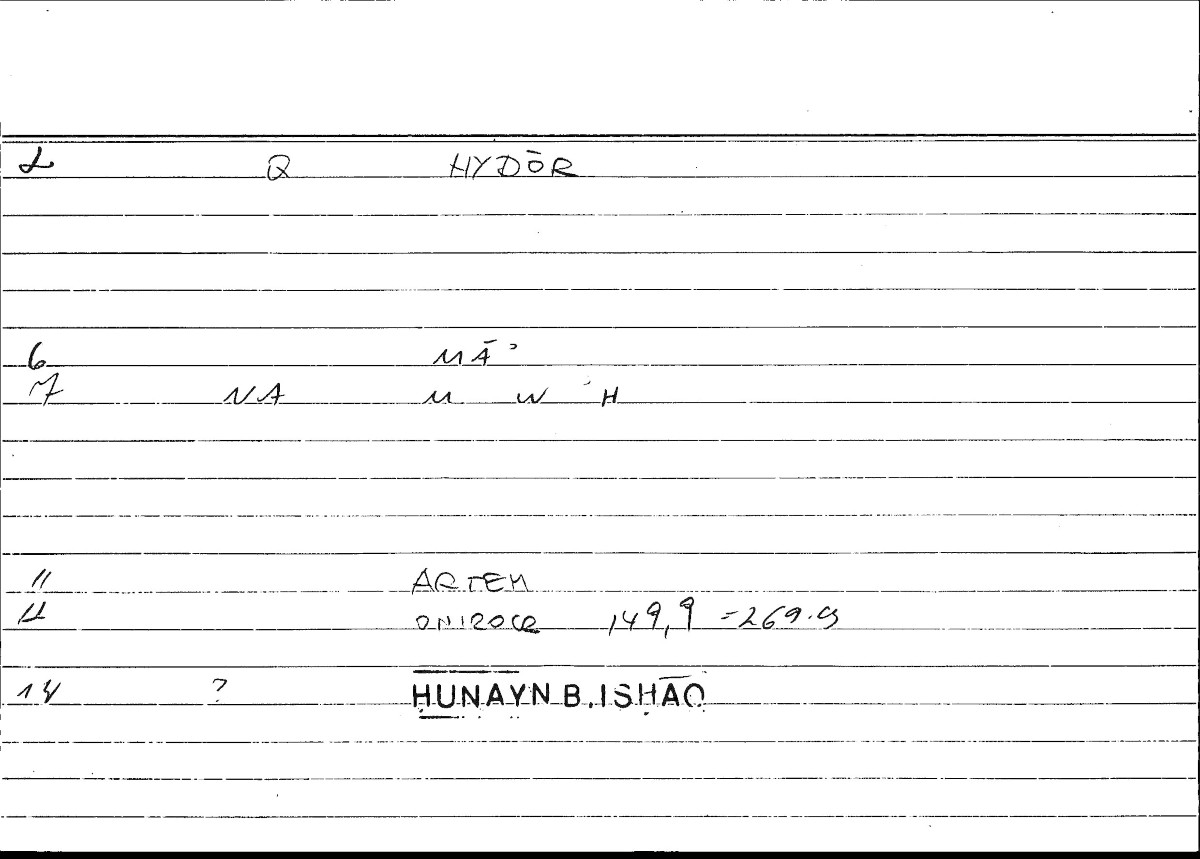 2 Q HYDŌR
6 MĀʾ
7 NA M W ʾ H
11 ARTEM
12 ONIROCR 149,9 = 269.9
14 ? ḤUNAYN B. ISḤĀQ